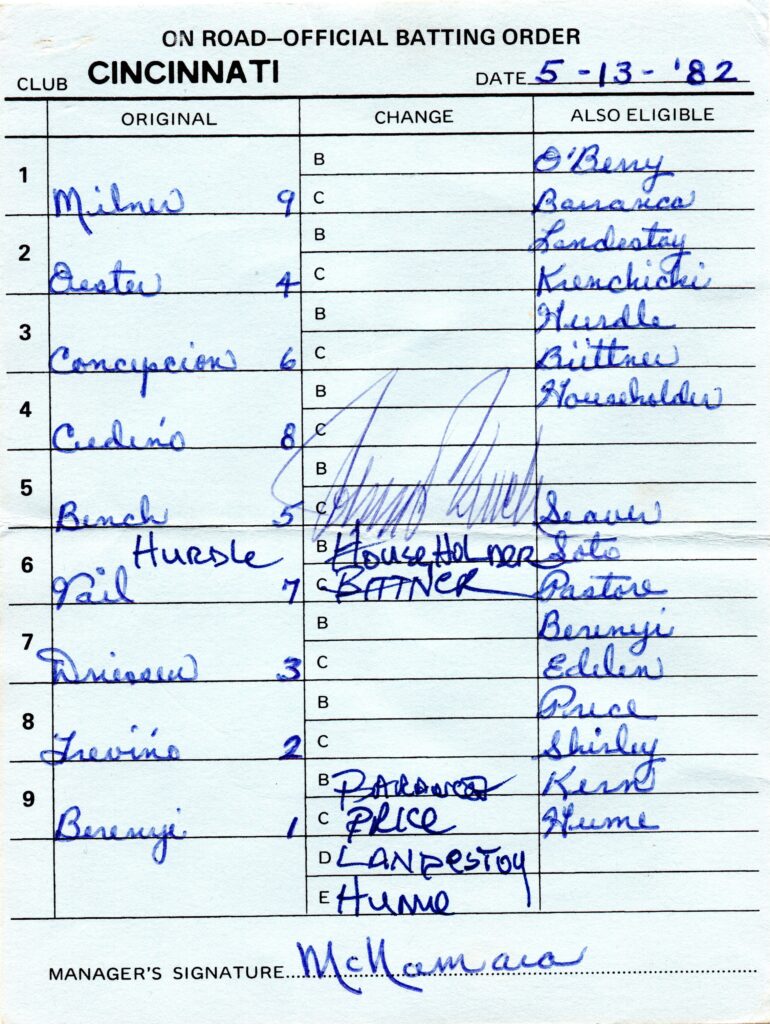 ON ROAD—OFFICIAL BATTING ORDER
CLUB CINCINNATI DATE 5-13-'82
ORIGINAL CHANGE ALSO ELIGIBLE
B O'Berry
1 Milner 9 C Barranca
B Landestoy
2 Oester 4 C Krenchicki
B Hurdle
3 Concepcion 6 C Büttner
B Householder
4 Cedeño 8 C
B
5 Bench 5 C Seaver
HURDLE B HOUSEHOLDER Soto
6 Vail 7 C BITTNER Pastore
B Berenyi
7 Driessen 3 C Edelen
B Price
8 Treviño 2 C Shirley
B BARANCA Kern
9 Berenyi 1 C PRICE Hume
D LANDESTOY
E HUME
MANAGER'S SIGNATURE McNamara